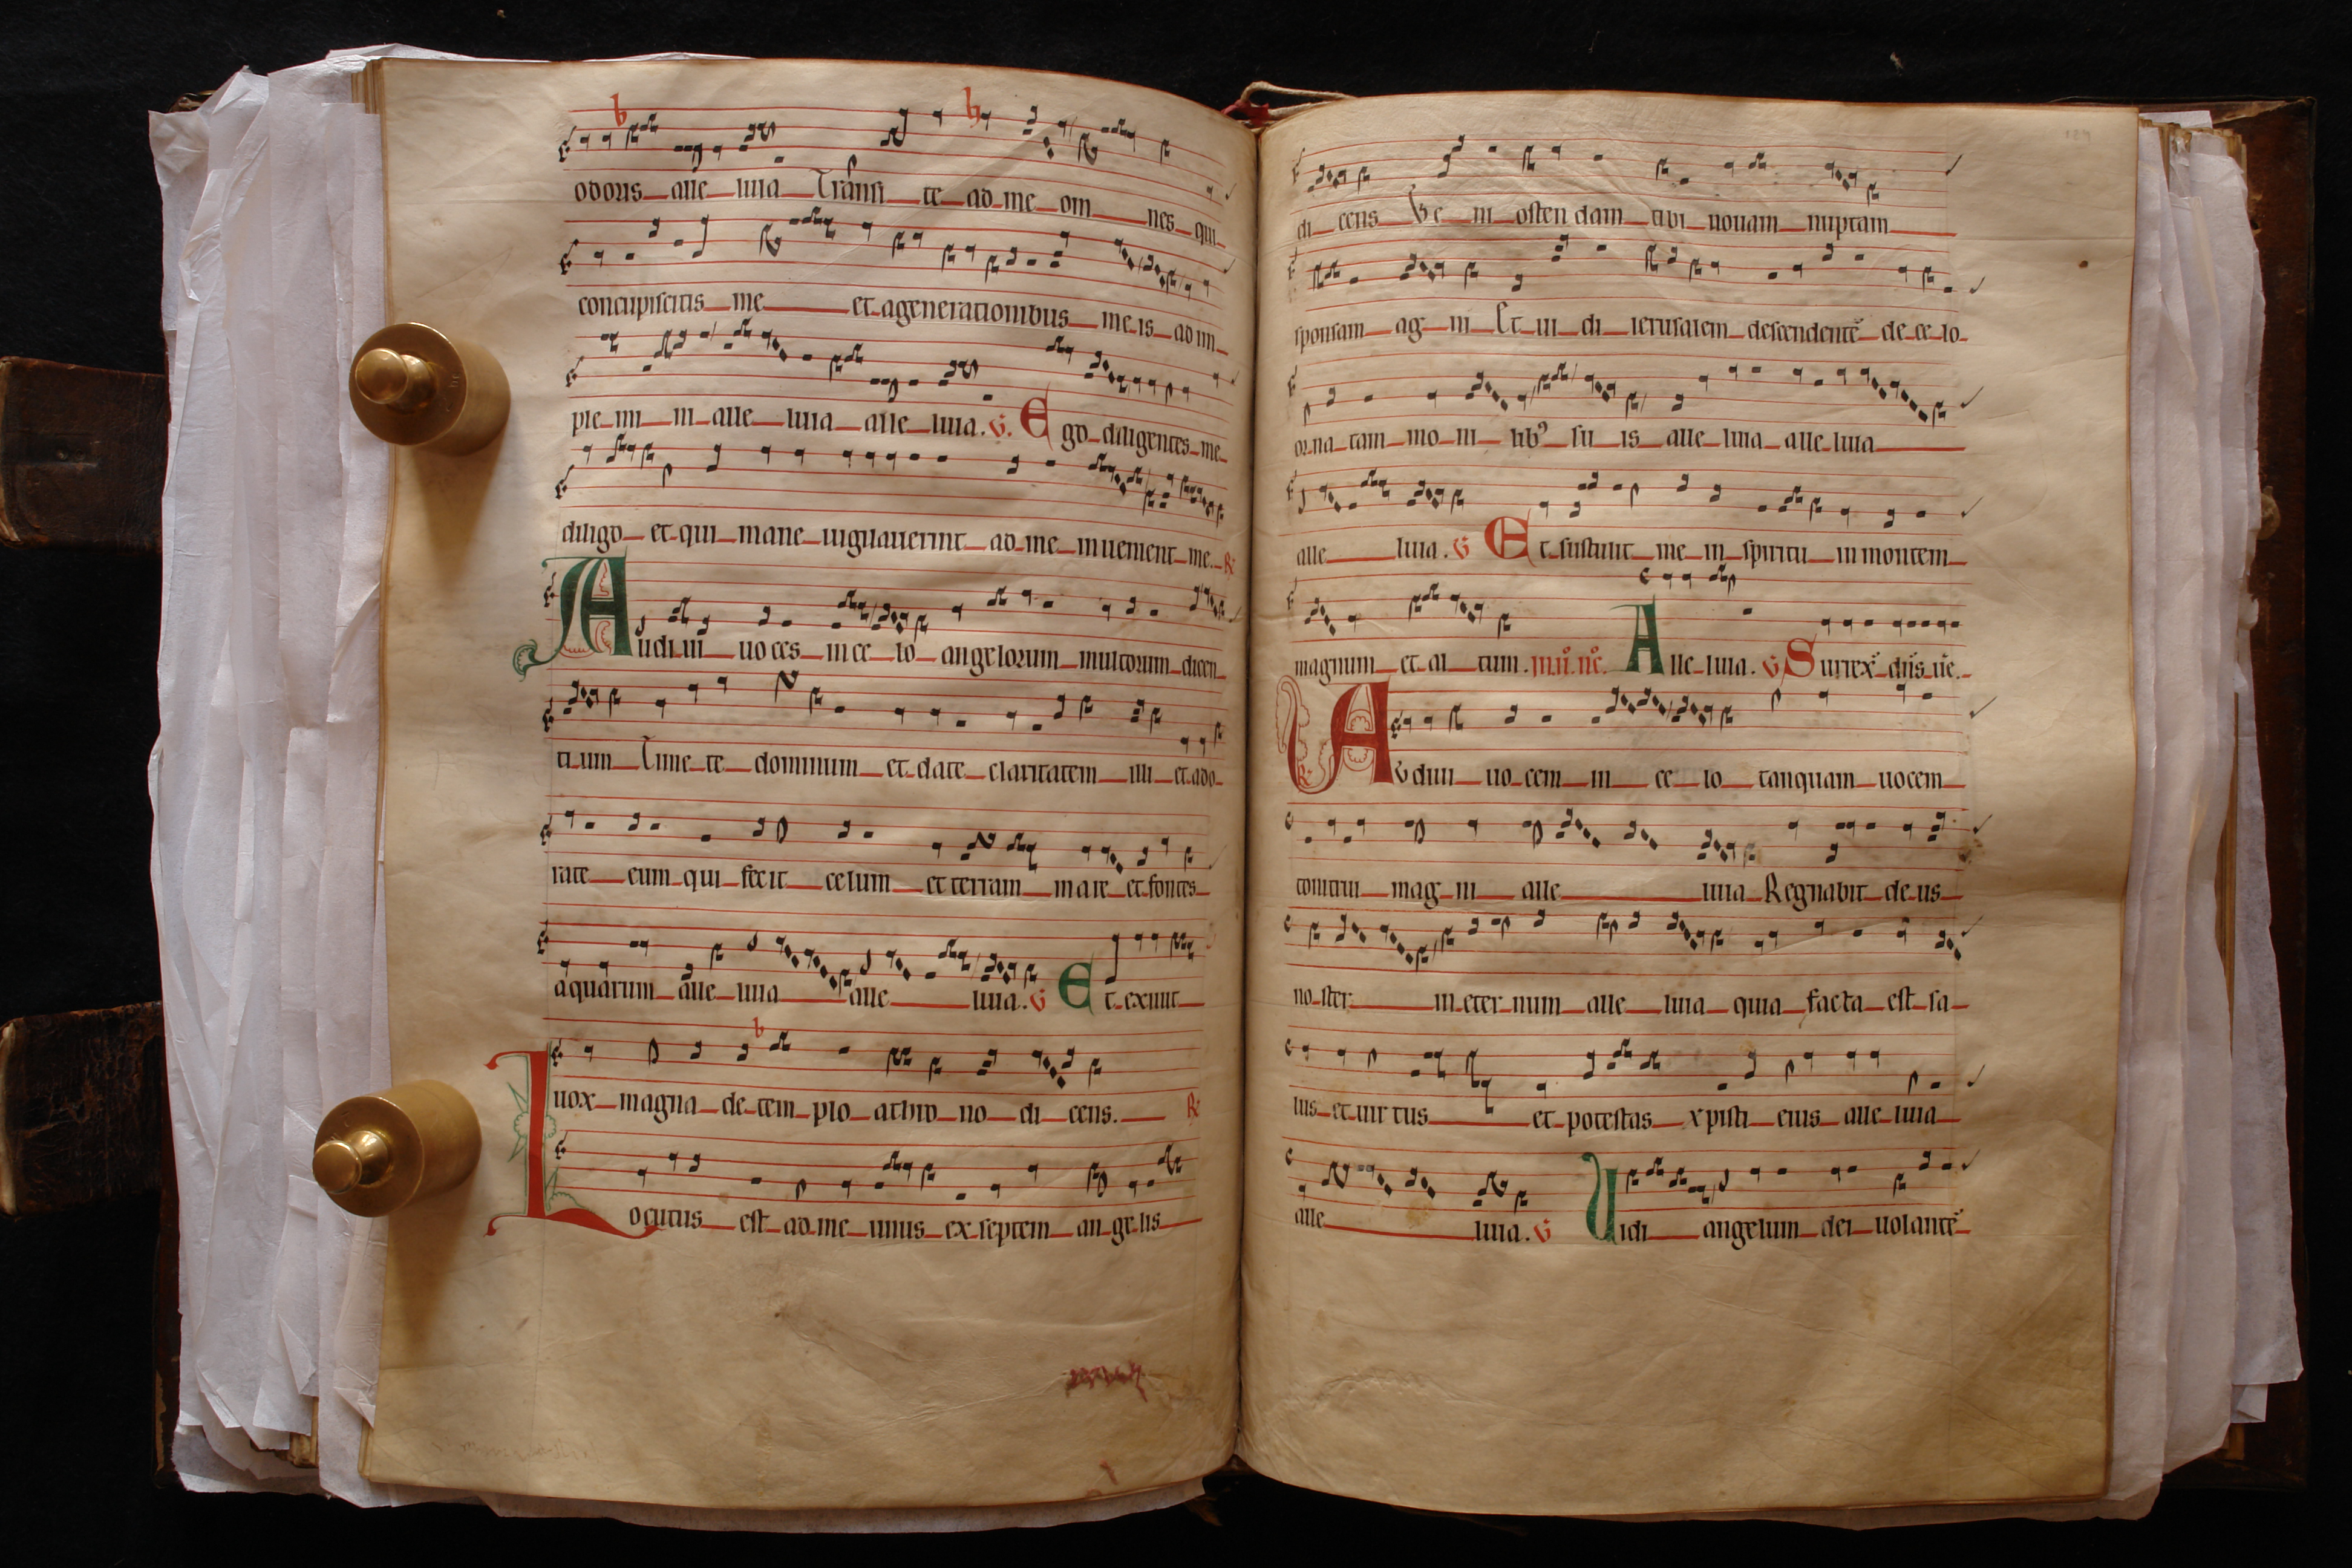 odoris alle luia Transi te ad me om nes qui
concupiscitis me et a generationibus me is ad im
ple mi ni alle luia alle luia. V. Ego diligentes me
diligo et qui mane uigilauerint ad me inuenient me. R
Audi ui uo ces in ce lo angelorum multorum dicen
ti um Time te dominum et date claritatem illi et ado
rate eum qui fecit celum et terram mare et fontes
aquarum alle luia alle luia. V Et exiuit
uox magna de tem plo a thro no di cens. R
Locutus est ad me unus ex septem an ge lis
di cens Ve ni osten dam tibi nouam nuptam
sponsam ag ni Et ui di ierusalem descendentē de ce lo
or na tam mo ni libꝰ su is alle luia alle luia
alle luia. V Et sustulit me in spiritu in montem
magnum et al tum. Alle luia. V Surrex̄ dn̄s ūe.
R Audiui uo cem in ce lo tanquam uocem
tonitrui mag ni alle luia Regnabit de us
no ster in eter num alle luia quia facta est sa
lus et uir tus et potestas xpisti eius alle luia
alle luia. V Uidi angelum dei uolantē